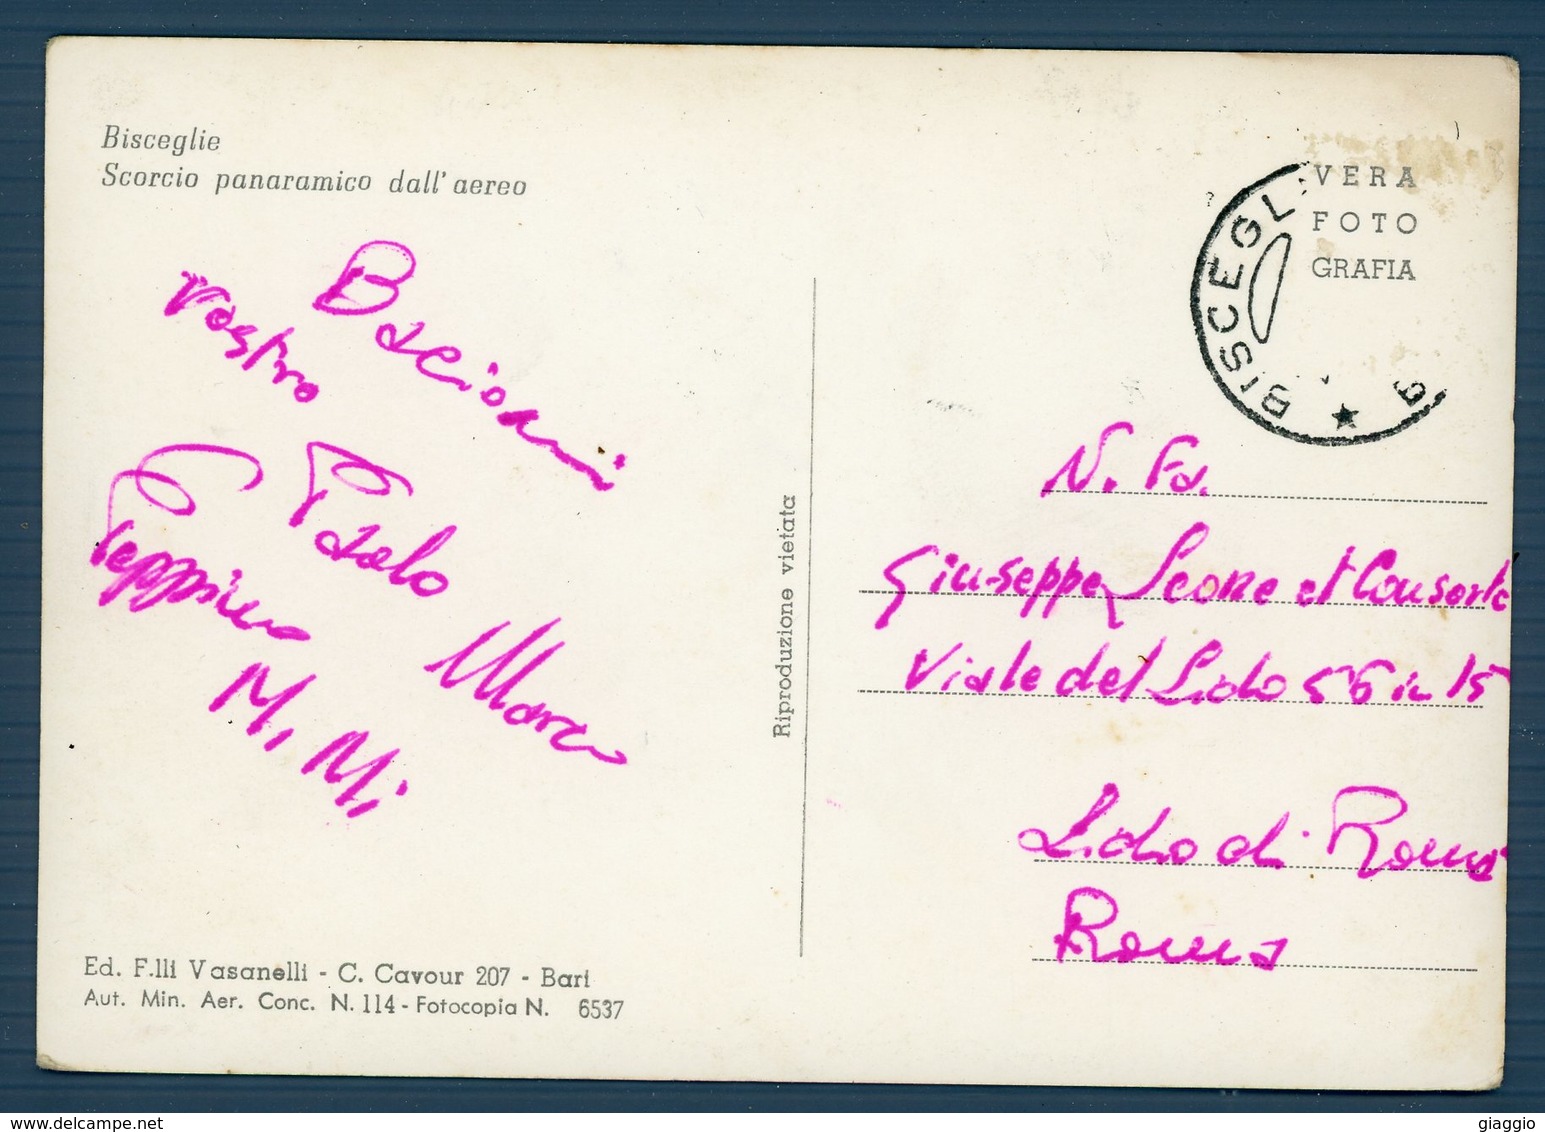 Bisceglie
Scorcio panaramico dall'aereo
Bacioni
vostro
Paolo
Peppino
Marco
Mi Mi
Ed. F.lli Vasanelli - C. Cavour 207 - Bari
Aut. Min. Aer. Conc. N. 114 - Fotocopia N. 6537
Riproduzione vietata
VERA
FOTO
GRAFIA
BISCEGL
N. Fa.
Giuseppe Leone et Consorte
Viale del Lido 56 in 15
Lido di Roma
Roma
www.delcampe.net
giaggio